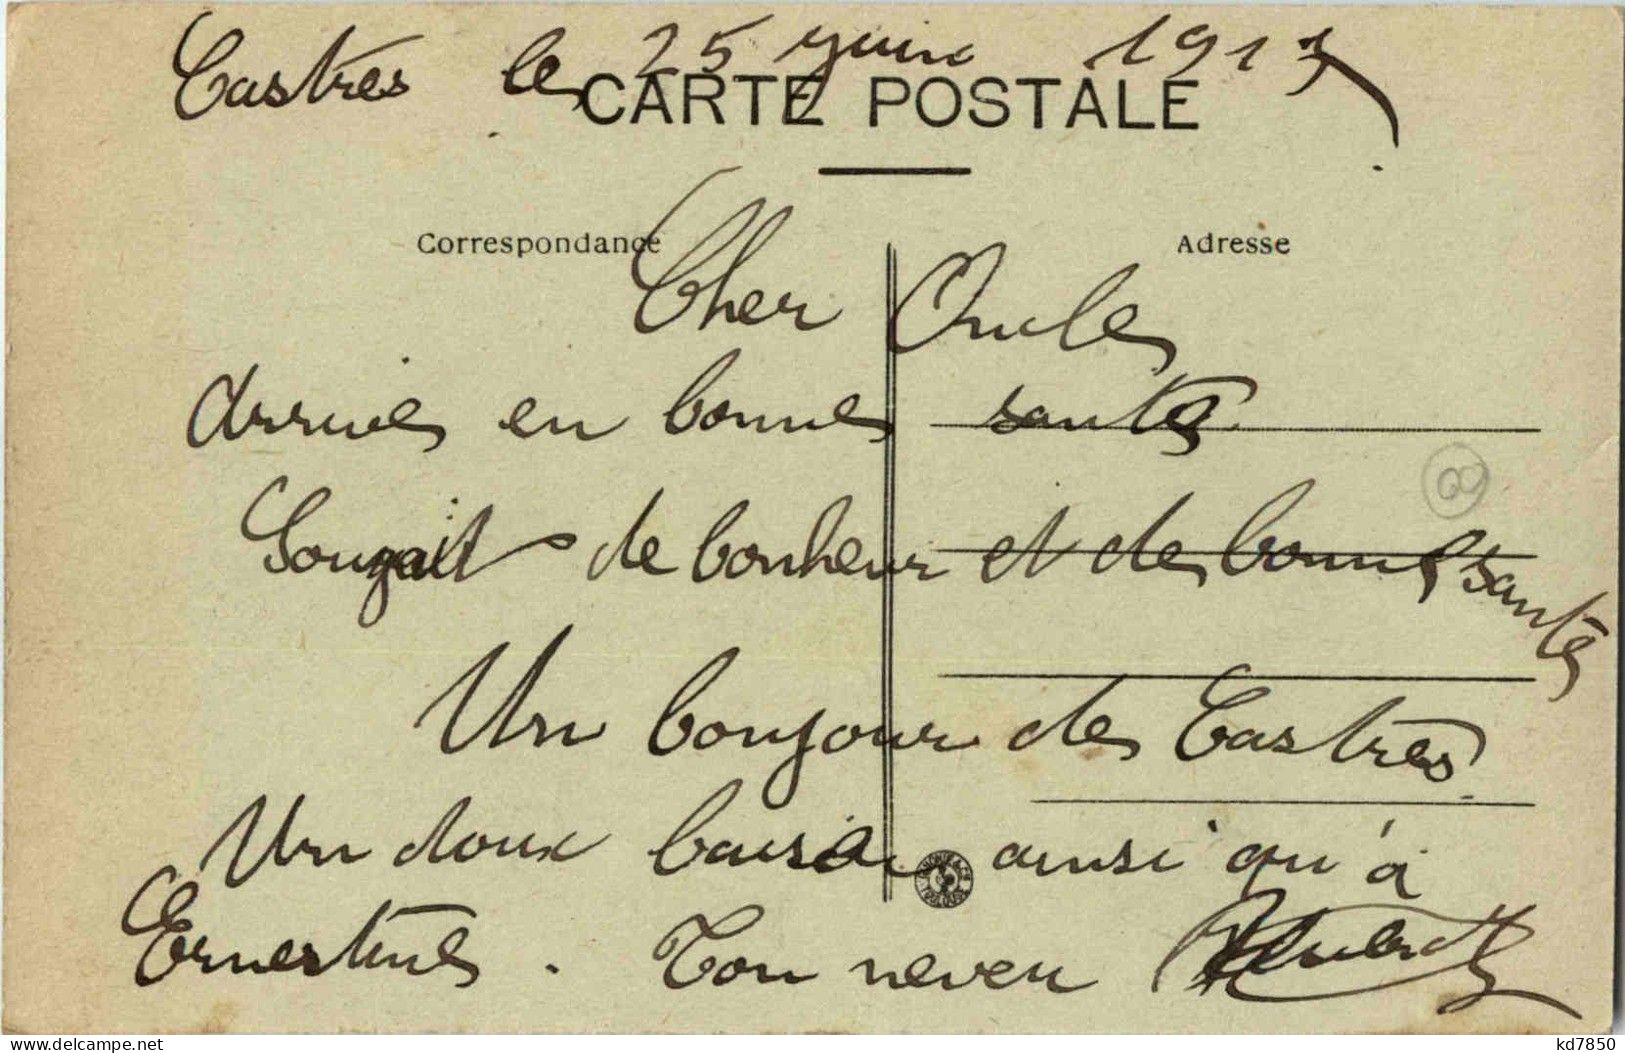 Castres le 25 juin 191
CARTE POSTALE
Correspondance
Adresse
Cher Oncle
Arrivés en bonne santé
de bonheur et de bonne santé
Un bonjour de Castres
Un doux baiser ainsi qu'à
Ernestine. Ton neveu
kd7850